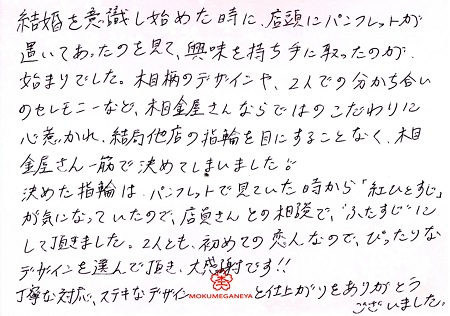 結婚を意識し始めた時に、店頭にパンフレットが
置いてあったのを見て、興味を持ち手に取ったのが
始まりでした。木目柄のデザインや、2人での分かち合い
のセレモニーなど、木目金屋さんならではのこだわりに
心惹かれ、結局他店の指輪を目にすることなく、木目
金屋さん一筋で決めてしまいました
決めた指輪は、パンフレットで見ていた時から「紅ひとすじ」
が気になっていたので、店員さんとの相談で、"ふたすじ"に
して頂きました。2人とも、初めての恋人なので、ぴったりな
デザインを選んで頂き、大感謝です!!
丁寧な対応、ステキなデザインと仕上がりをありがとう
ございました。
MOKUMEGANEYA